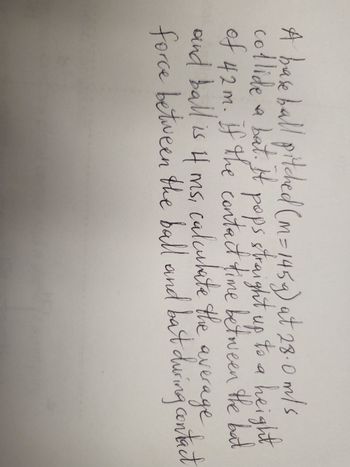 A base ball pitched (m=145g) at 28.0 m/s
collide a bat. it pops straight up to a height
of 42 m. if the contact time between the bat
and ball is 4 ms, calculate the average
force between the ball and bat during contact